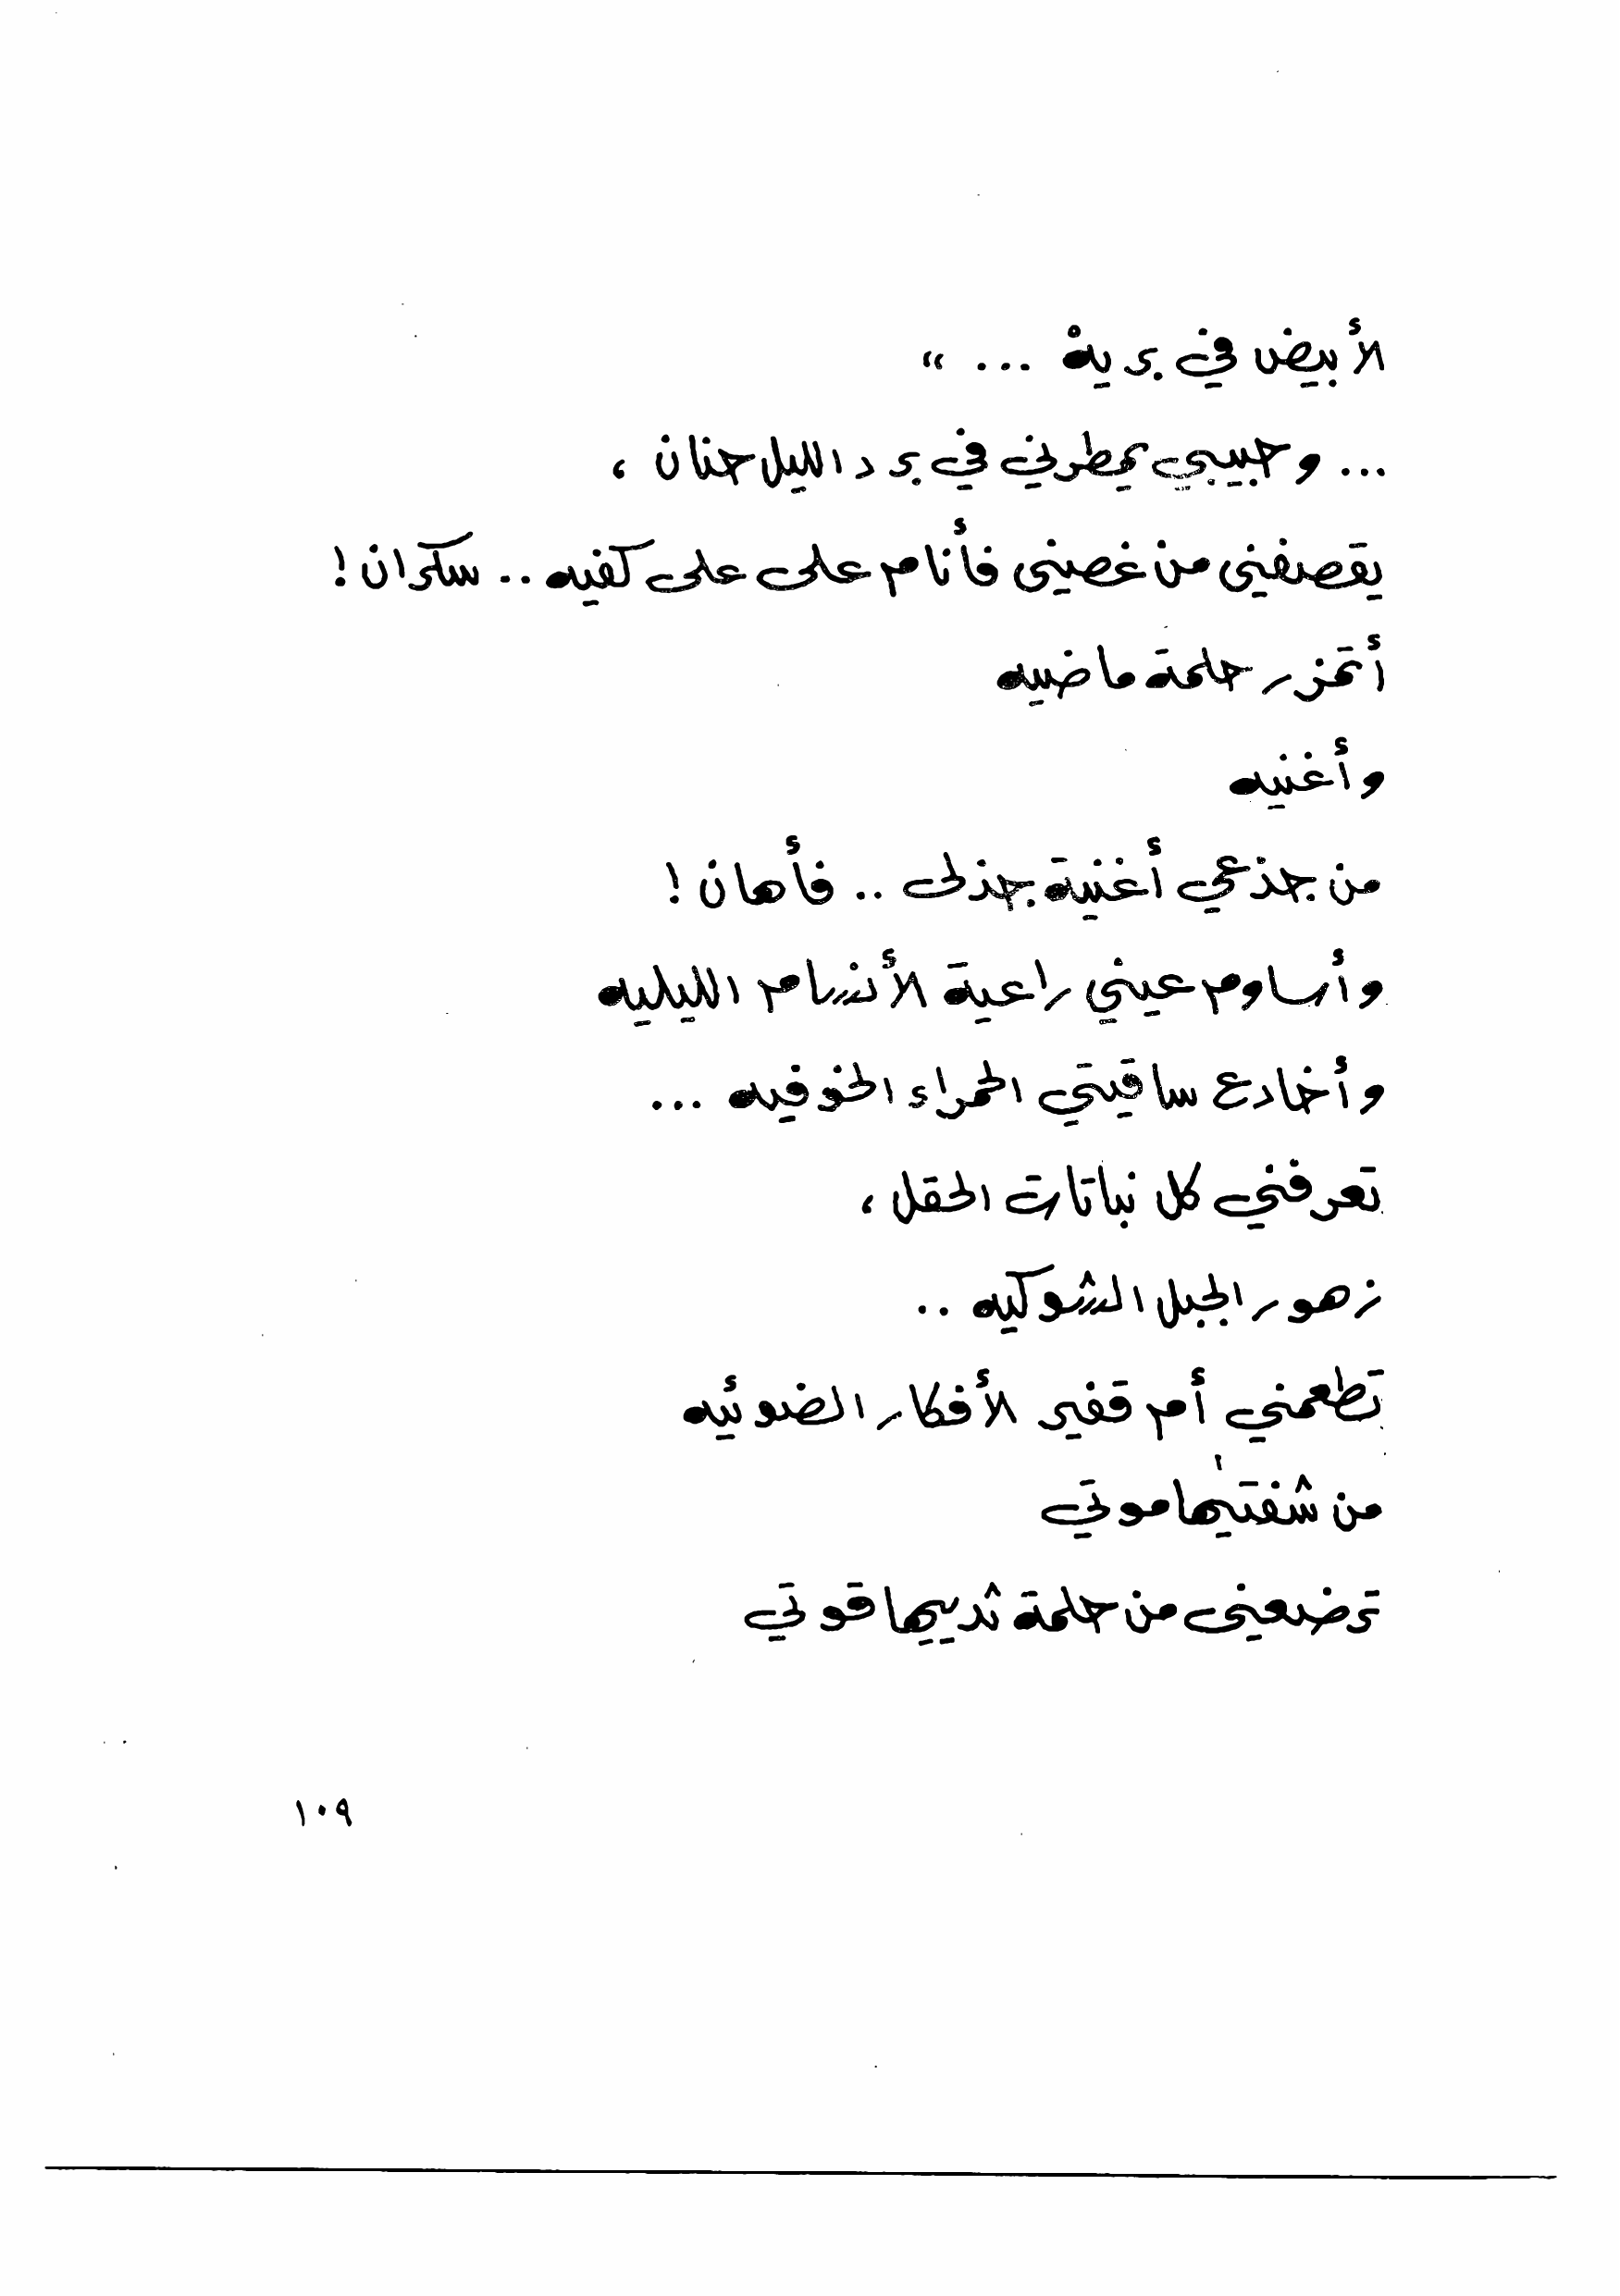 الأبيض في بريهْ ... »
... وحبيبي يمطرني في برد الليل حنان ،
يقصفني من غصيني فأنام على على كفيه .. سكران !
أتمزر حلمة ماضيه
وأغنيه
من جذعي أغنية جذلى .. فأهان !
وأساوم عيني راعية الأنسام الليليه
وأخادع ساقيتي الحمراء الخوفيه ...
تعرفني كل نباتات الحقل ،
زهور الجبل الشوكيه ..
تطعمني أم قفير الأفكار الضوئيه
من شفتيها موتي
ترضعني من حلمة ثدييها قوتي
١٠٩